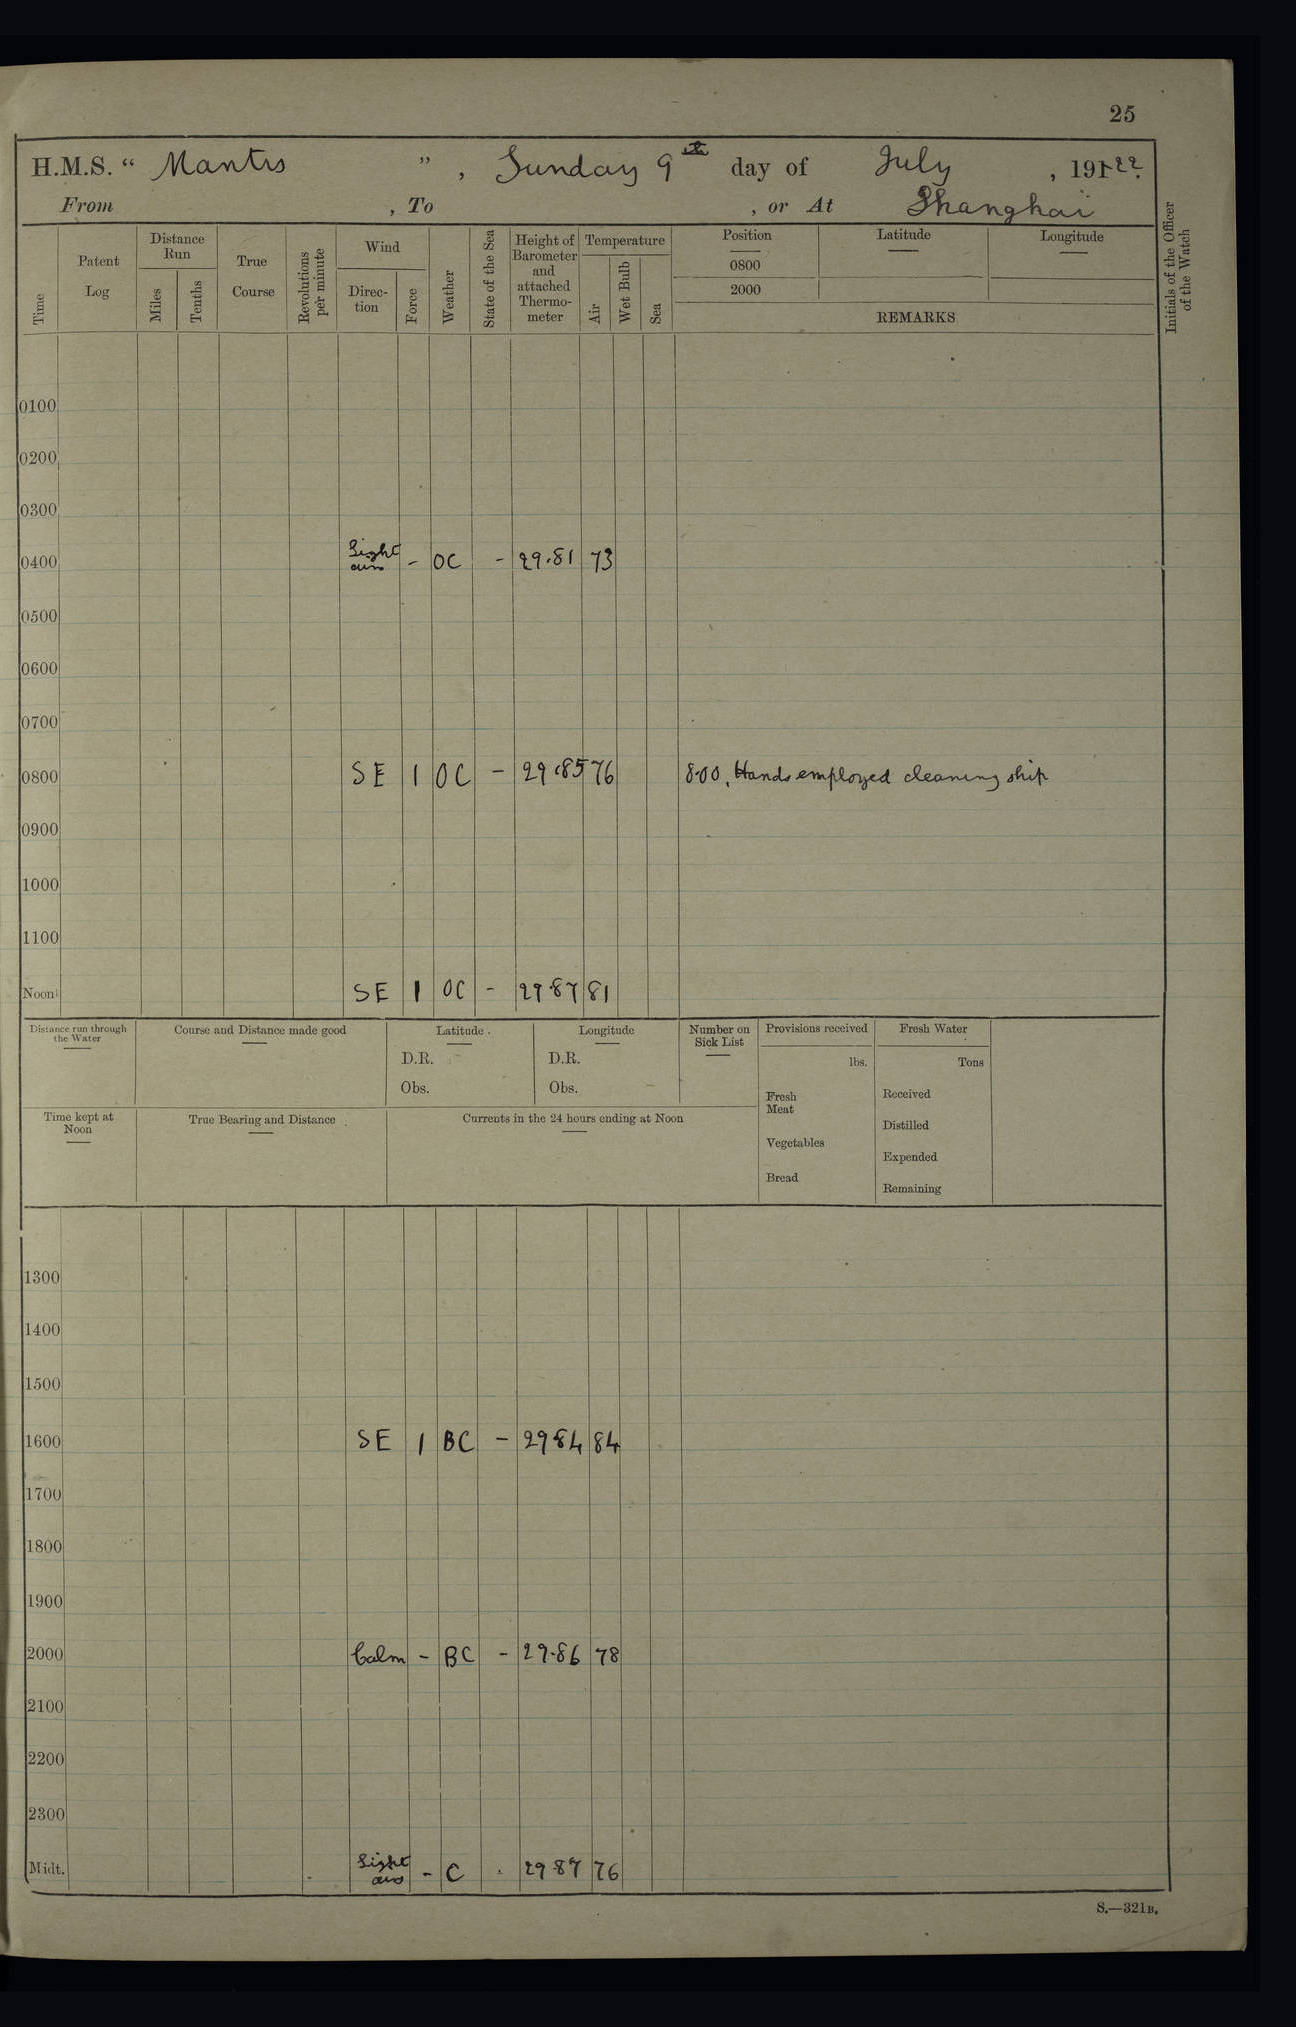 25
H.M.S. “ Mantis ” , Sunday 9th day of July , 1922.
From , To , or At Shanghai
Time
Patent Log
Distance Run
Miles
Tenths
True Course
Revolutions per minute
Wind
Direction
Force
Weather
State of the Sea
Height of Barometer and attached Thermometer
Temperature
Air
Wet Bulb
Sea
Position
0800
2000
Latitude
Longitude
REMARKS
Initials of the Officer of the Watch
0100
0200
0300
0400 Light airs - OC - 29.81 73
0500
0600
0700
0800 SE 1 OC - 29.85 76 8.00. Hands employed cleaning ship
0900
1000
1100
Noon SE 1 OC - 29.87 81
Distance run through the Water
Course and Distance made good
Latitude
D.R.
Obs.
Longitude
D.R.
Obs.
Number on Sick List
Provisions received
lbs.
Fresh Meat
Vegetables
Bread
Fresh Water
Tons
Received
Distilled
Expended
Remaining
Time kept at Noon
True Bearing and Distance
Currents in the 24 hours ending at Noon
1300
1400
1500
1600 SE 1 BC - 29 84 84
1700
1800
1900
2000 Calm - BC - 29.86 78
2100
2200
2300
Midt. Light airs - C . 29 87 76
S.—321B.